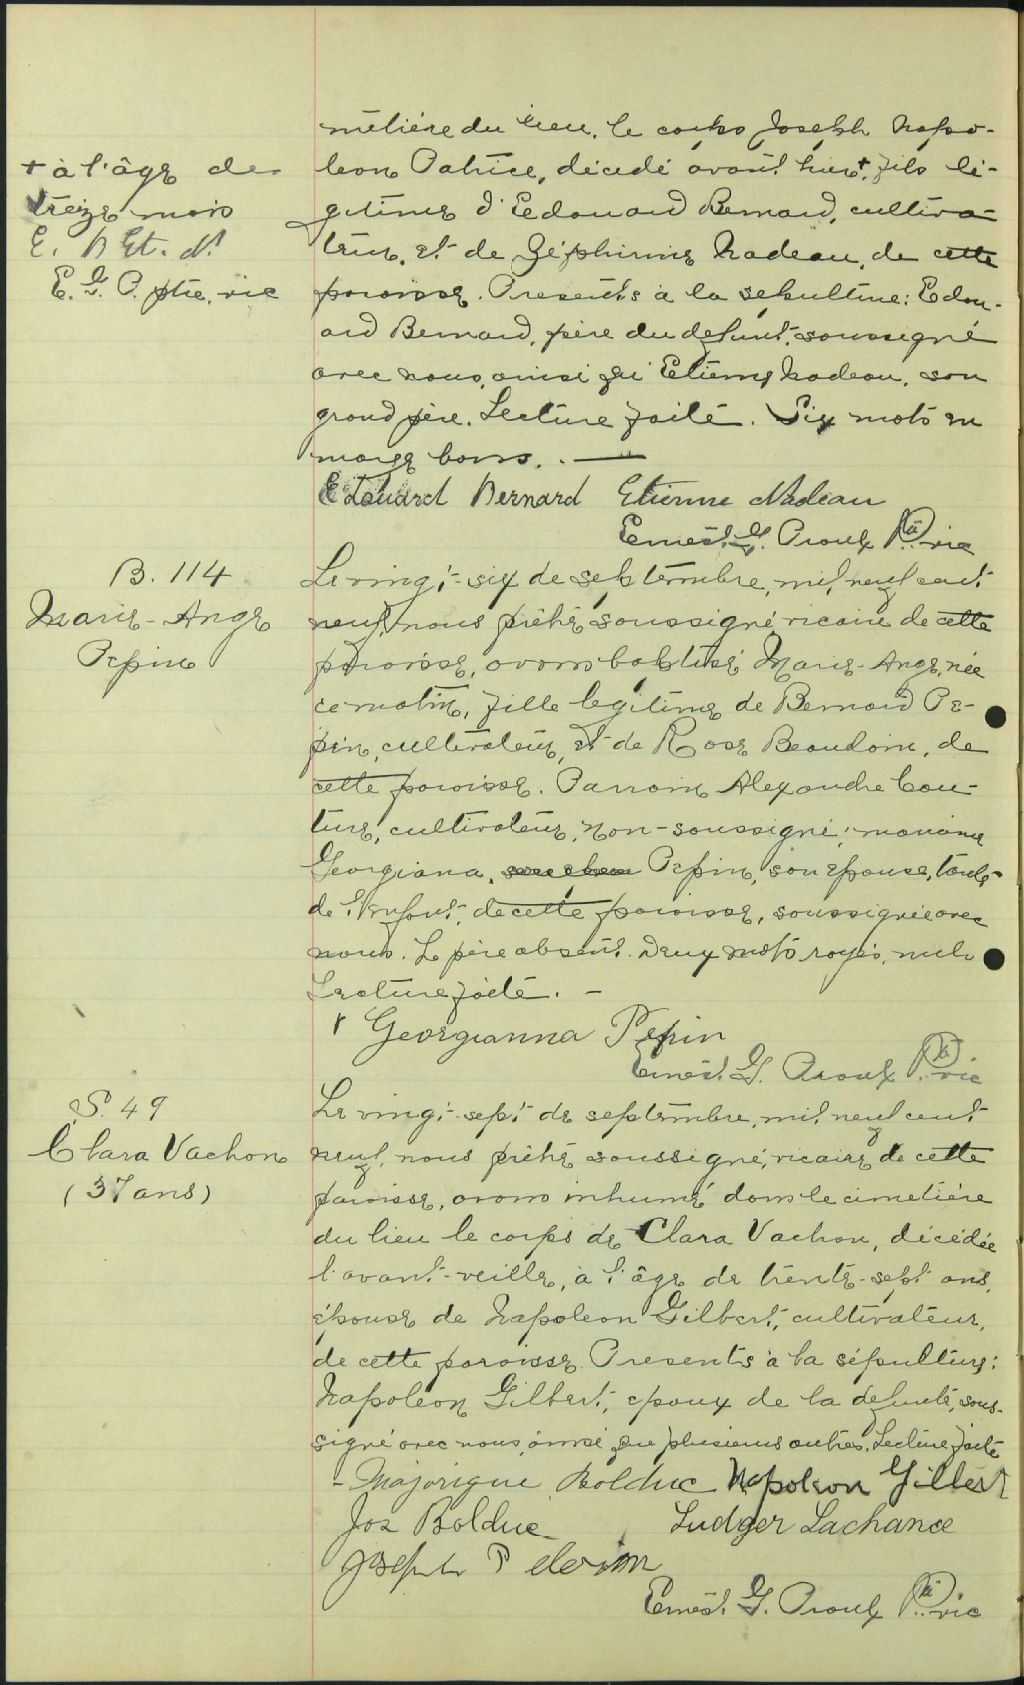 metière du lieu, le corps Joseph Napo-
+ à l'âge de
treize mois
E. B Et. N.
E. G. P. ptre, vic
léon Patrice, décédé avant hier+, fils lé-
gitime d'Edouard Bernard, cultiva-
teur, et de Zéphirine Nadeau, de cette
paroisse. Presents à la sépulture: Edou-
ard Bernard, père du defunt, soussigné
avec nous, ainsi qu'Etienne Nadeau, son
grand père. Lecture faite. Six mots en
marge bons. —
Edouard Bernard Etienne Nadeau
Ernest. G. Proulx Ptre vic
B. 114
Marie-Ange
Pepin
Le vingt-six de septembre, mil neuf cent
neuf, nous prêtre soussigné vicaire de cette
paroisse, avons baptisé Marie-Ange, née
ce matin, fille légitime de Bernard Pe-
pin, cultivateur, et de Rose Beaudoin, de
cette paroisse. Parrain Alexandre Cou-
ture, cultivateur, non-soussigné; marraine
Georgiana, Pepin, son épouse, tante
de l'enfant, de cette paroisse, soussignée avec
nous. Le père absent. Deux mots rayés, nuls
Lecture faite. –
Georgianna Pepin
Ernest. G. Proulx Ptre vic
S. 49
Clara Vachon
(37 ans)
Le vingt-sept de septembre, mil neuf cent
neuf, nous prêtre soussigné, vicaire de cette
paroisse, avons inhumé dans le cimetière
du lieu le corps de Clara Vachon, décédée
l'avant-veille, à l'âge de trente-sept ans,
épouse de Napoléon Gilbert, cultivateur,
de cette paroisse. Presents à la sépulture:
Napoléon Gilbert, epoux de la defunte, sous-
signé avec nous, ainsi que plusieurs autres. Lecture faite
- Majorique Bolduc Napoleon Gilbert
Jos Bolduc Ludger Lachance
Joseph
Ernest. G. Proulx Ptre vic